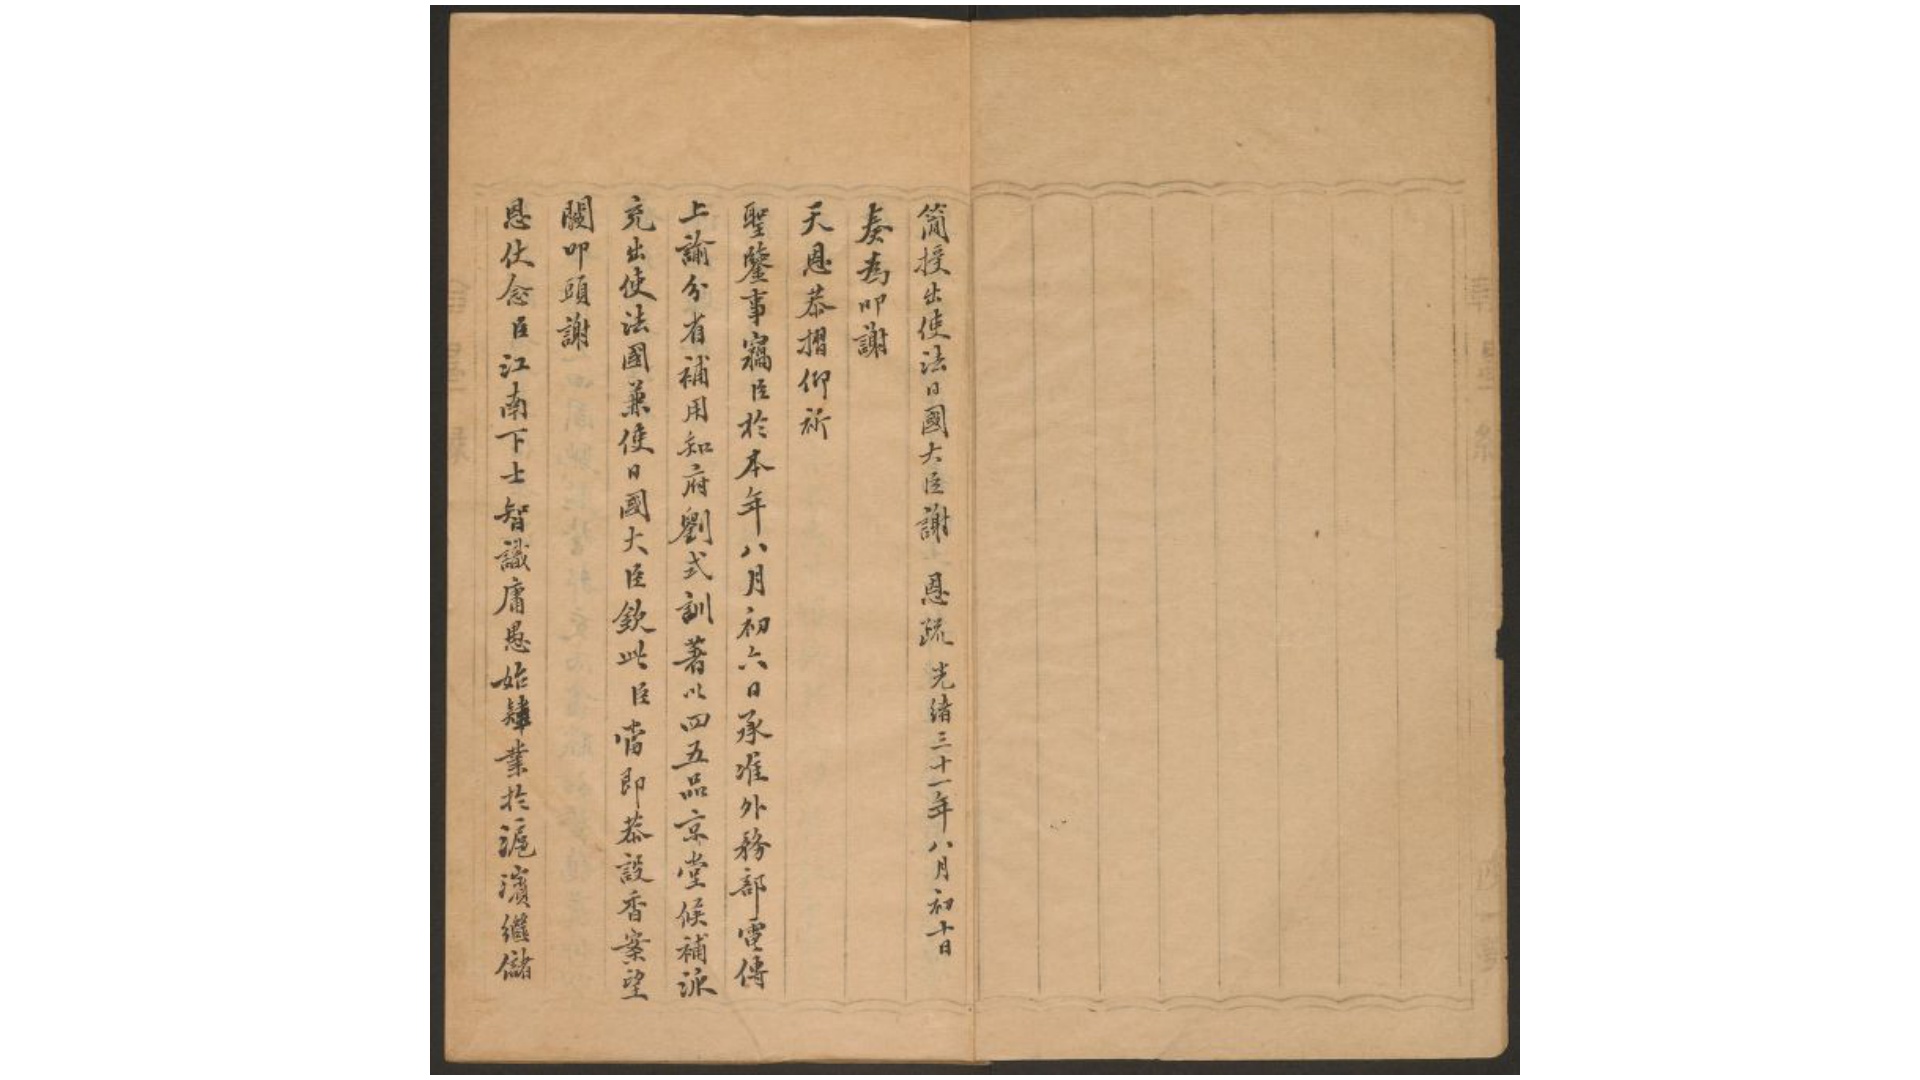 簡授出使法日國大臣謝 恩疏 光緒三十一年八月初十日
奏為叩謝
天恩恭摺仰祈
聖鑒事竊臣於本年八月初六日承准外務部電傳
上諭分省補用知府劉式訓著以四五品京堂候補派
充出使法國兼使日國大臣欽此臣當即恭設香案望
闕叩頭謝
恩伏念臣江南下士智識庸愚始肄業於滬濱繼儲